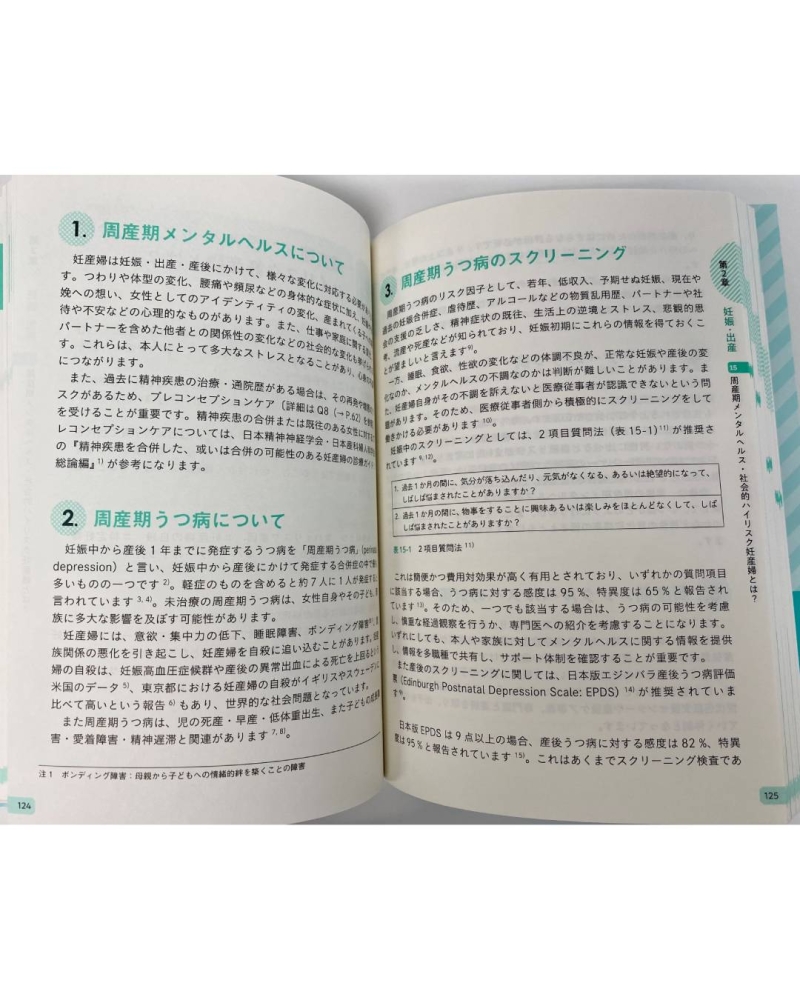 1. 周産期メンタルヘルスについて
妊産婦は妊娠・出産・産後にかけて、様々な変化に対応する必要があ
す。つわりや体型の変化、腰痛や頻尿などの身体的な症状に加え、
娩への想い、女性としてのアイデンティティの変化、産まれてくる子
待や不安などの心理的なものがあります。また、仕事や家庭に関する
パートナーを含めた他者との関係性の変化などの社会的な変化も
す。これらは、本人にとって多大なストレスとなることがあり、心身
につながります。
また、過去に精神疾患の治療・通院歴がある場合は、その再発や
スクがあるため、プレコンセプションケア（詳細はQ8（→P.62）を
を受けることが重要です。精神疾患の合併または既往のある女性に対する
レコンセプションケアについては、日本精神神経学会・日本産科婦人科
の『精神疾患を合併した、或いは合併の可能性のある妊産婦の診療ガイド
総論編』1) が参考になります。
2. 周産期うつ病について
妊娠中から産後1年までに発症するうつ病を「周産期うつ病」(perina
depression) と言い、妊娠中から産後にかけて発症する合併症の中で
多いものの一つです 2)。軽症のものを含めると約7人に1人が発症すると
言われています 3, 4)。未治療の周産期うつ病は、女性自身やその子ども、
族に多大な影響を及ぼす可能性があります。
妊産婦には、意欲・集中力の低下、睡眠障害、ボンディング障害
族関係の悪化を引き起こし、妊産婦を自殺に追い込むことがあります。
婦の自殺は、妊娠高血圧症候群や産後の異常出血による死亡を上回ると
米国のデータ 5)、東京都における妊産婦の自殺がイギリスやスウェーデン
比べて高いという報告 6) もあり、世界的な社会問題となっています。
また周産期うつ病は、児の死産・早産・低体重出生、また子どもの
害・愛着障害・精神遅滞と関連があります 7, 8)。
注1 ボンディング障害：母親から子どもへの情緒的絆を築くことの障害
124
3. 周産期うつ病のスクリーニング
周産期うつ病のリスク因子として、若年、低収入、予期せぬ妊娠、現在や
過去の妊娠合併症、虐待歴、アルコールなどの物質乱用歴、パートナーや社
会の支援の乏しさ、精神症状の既往、生活上の逆境とストレス、悲観的思
考、流産や死産などが知られており、妊娠初期にこれらの情報を得ておくこ
とが望ましいと言えます 9)。
一方、睡眠、食欲、性欲の変化などの体調不良が、正常な妊娠や産後の変
化なのか、メンタルヘルスの不調なのかは判断が難しいことがあります。ま
た、妊産婦自身がその不調を訴えないと医療従事者が認識できないという問
題があります。そのため、医療従事者側から積極的にスクリーニングをして
働きかける必要があります 10)。
妊娠中のスクリーニングとしては、2項目質問法（表15-1）11) が推奨さ
れています 9, 12)。
1. 過去1か月の間に、気分が落ち込んだり、元気がなくなる、あるいは絶望的になって、
しばしば悩まされたことがありますか？
2. 過去1か月の間に、物事をすることに興味あるいは楽しみをほとんどなくして、しば
しば悩まされたことがありますか？
表15-1 2項目質問法 11)
これは簡便かつ費用対効果が高く有用とされており、いずれかの質問項目
に該当する場合、うつ病に対する感度は95％、特異度は65％と報告されて
います 13)。そのため、一つでも該当する場合は、うつ病の可能性を考慮
し、慎重な経過観察を行うか、専門医への紹介を考慮することになります。
いずれにしても、本人や家族に対してメンタルヘルスに関する情報を提供
し、情報を多職種で共有し、サポート体制を確認することが重要です。
また産後のスクリーニングに関しては、日本版エジンバラ産後うつ病評価
票 (Edinburgh Postnatal Depression Scale: EPDS) 14) が推奨されていま
す 9)。
日本版EPDSは9点以上の場合、産後うつ病に対する感度は82％、特異
度は95％と報告されています 15)。これはあくまでスクリーニング検査であ
第2章
妊娠・出産
15
周産期メンタルヘルス・社会的ハイリスク妊産婦とは？
125